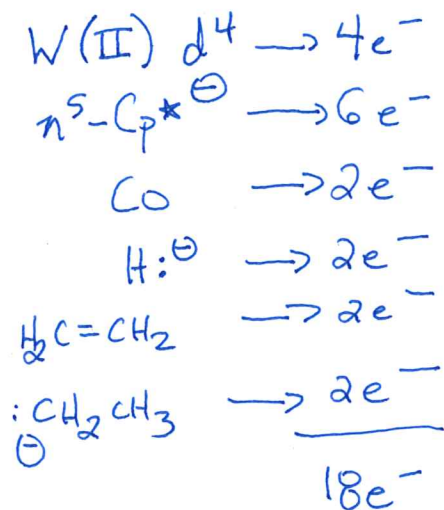 W(II) d⁴ → 4e⁻
η⁵-Cp*⊖ → 6e⁻
CO → 2e⁻
H:⊖ → 2e⁻
H₂C=CH₂ → 2e⁻
:CH₂CH₃ → 2e⁻
⊖
18e⁻